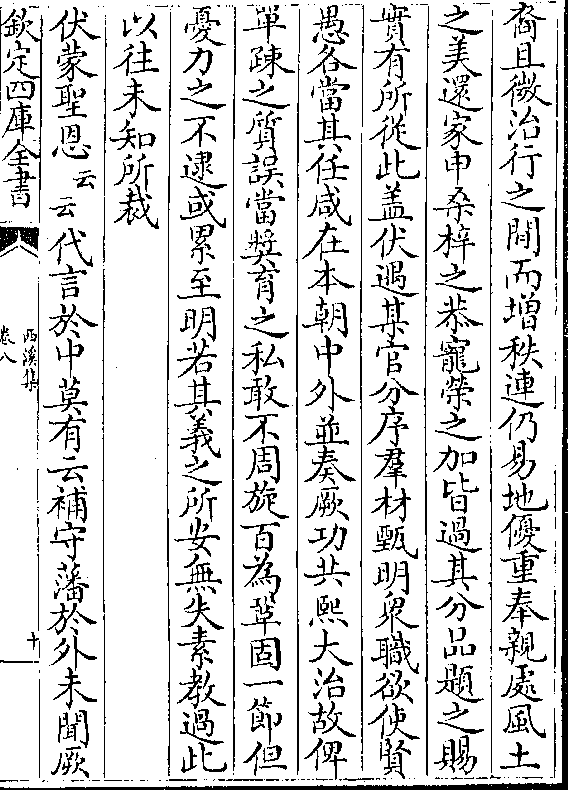 裔且微治行之間而增秩連仍易地優重奉親處風土
之美還家申桑梓之恭寵榮之加皆過其分品題之賜
實有所從此盖伏遇某官分序羣材甄明衆職欲使賢
愚各當其任咸在本朝中外並奏厥功共熙大治故俾
單踈之質誤當奬育之私敢不周旋百為鞏固一節但
憂力之不逮或累至明若其義之所安無失素教過此
以往未知所裁
伏蒙聖恩云云代言於中莫有云補守藩於外未聞厥
欽定四庫全書
西溪集
卷八
十